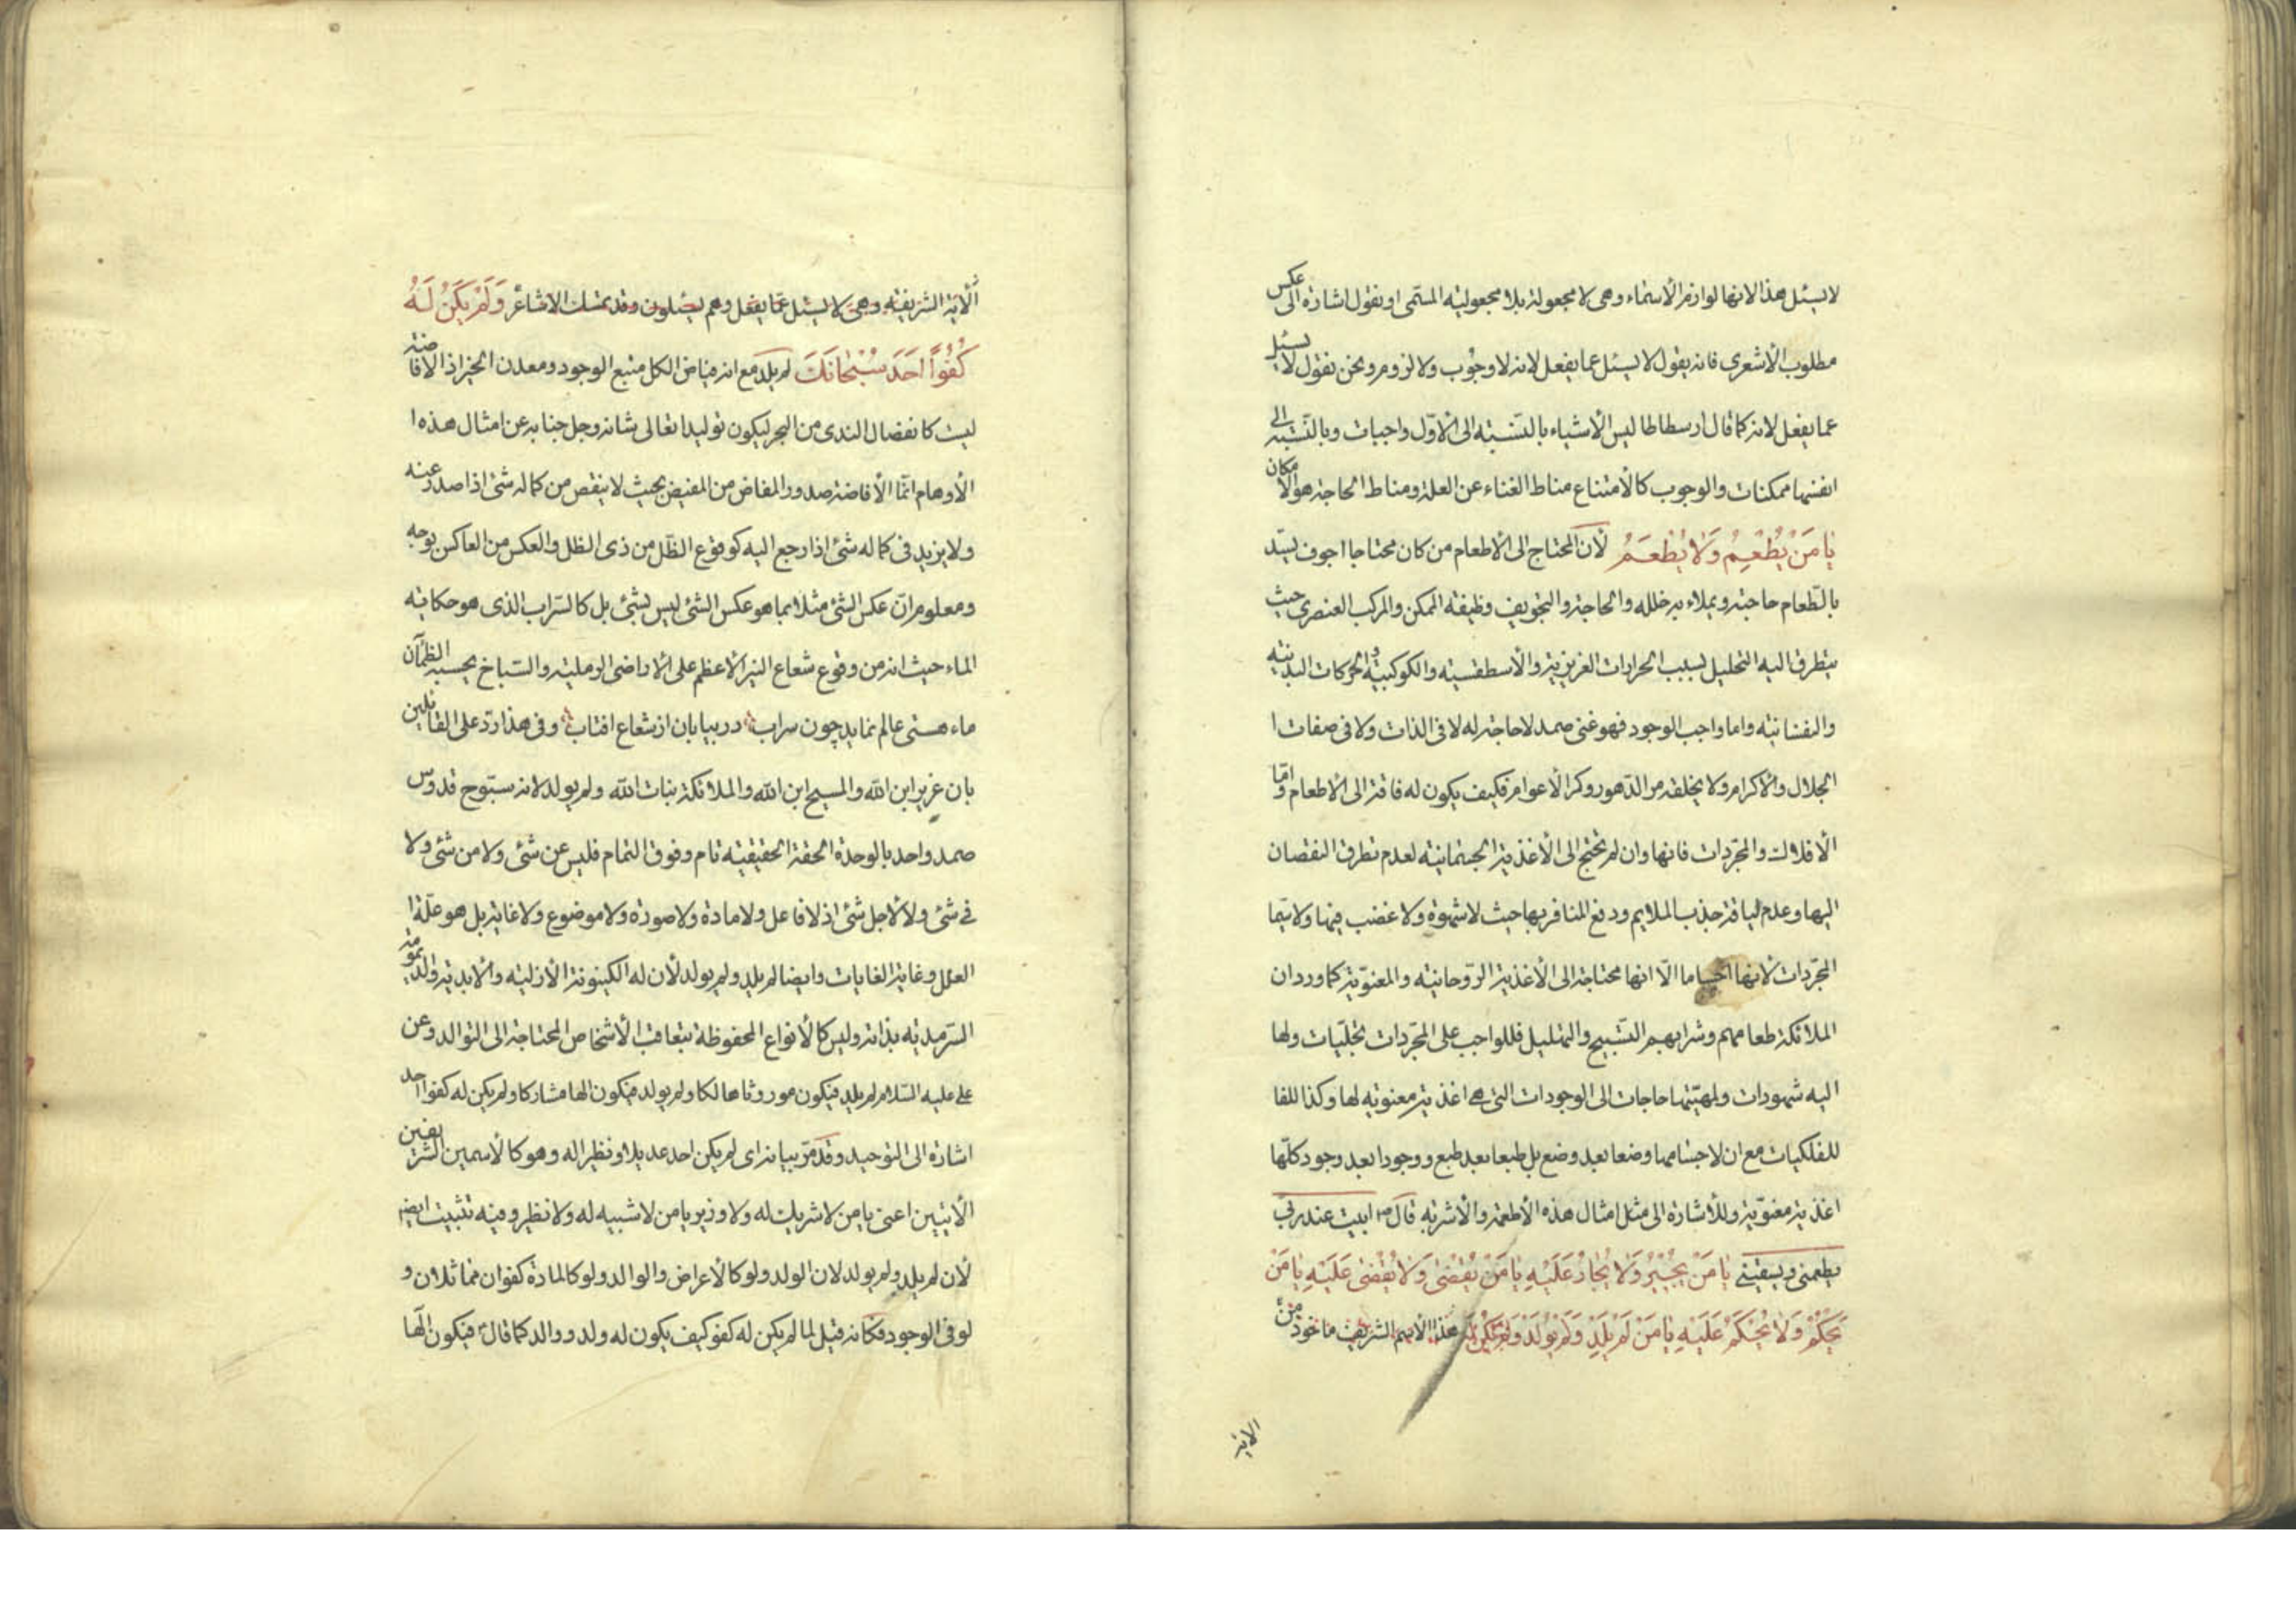 لا يسئل هذا لانها لوازم الأسماء وهى لا مجعولة بلا مجعولية المسمى او نقول اشارة الى عكس
مطلوب الأشعرى فانه يقول لا يسئل عما يفعل لانه لا وجوب ولا لزوم ونحن نقول لا يسئل
عما يفعل لانه كما قال ارسطاطاليس الأشياء بالنسبة الى الأوّل واجبات وبالنسبة الى
انفسها ممكنات والوجوب كالأمتناع مناط الغناء عن العلة ومناط الحاجة هو الأمكان
يٰا مَنْ يُطْعِمُ وَلٰا يُطْعَمُ لأن المحتاج الى الأطعام من كان محتاجا اجوف يسدّ
بالطّعام حاجته ويملاء به خلله والحاجة والتجويف وظيفة الممكن والمركب العنصرى حيث
يتطرق اليه التحليل بسبب الحرارات الغريزية والأسطقسية والكوكبية والحركات البدنية
والنفسانية واما واجب الوجود فهو غنى صمد لا حاجة له لا فى الذات ولا فى صفات ا
الجلال والأكرام ولا يخلقه مر الدّهور وكر الأعوام فكيف يكون له فاقة الى الأطعام وامّا
الأفلاك والمجرّدات فانها وان لم تحتج الى الأغذية الجسمانية لعدم تطرق النقصان
اليها وعدم لياقة جذب الملايم ودفع المنافر بها حيث لا شهوة ولا غضب فيها ولا سيّما
المجرّدات لأنها اجساما الّا انها محتاجة الى الأغذية الرّوحانية والمعنويّة كما ورد ان
الملائكة طعامهم وشرابهم التّسبيح والتهليل فللواجب على المجرّدات تجلّيات ولها
اليه شهودات ولمهيّتها حاجات الى الوجودات التى هى اغذية معنويه لها وكذا للفا
للفلكيات مع ان لاجسامها وضعا بعد وضع بل طبعا بعد طبع ووجودا بعد وجود كلّها
اغذية معنويّة وللأشارة الى مثل امثال هذه الأطعمة والأشربه قال ص ابيت عند ربى
يطعمنى ويسقينى يٰا مَنْ يُجْيِرُ وَلٰا يُجٰارُ عَلَيْهِ يٰا مَنْ يَقْضٰى وَلٰا يُقْضٰى عَلَيْهِ يٰا مَنْ
يَحْكُمُ وَلٰا يُحْكَمُ عَلَيْهِ يٰا مَنْ لَمْ يَلِدْ وَلَمْ يُولَدْ وَلَمْ يَكُنْ لَهُ هذا الأسم الشريف ماخوذ من
الآية
الآية الشريفة وهى لا يسئل عمّا يفعل وهم يسئلون وقد تمسك الاشاعر وَلَمْ يَكُنْ لَهُ
كُفُواً اَحَدٌ سُبْحٰانَكَ لم يلد مع انه فياض الكل منبع الوجود ومعدن الخير اذ الافاضة
ليت كانفصال الندى من البحر ليكون توليدا تعالى شانه وجل جنابه عن امثال هذه ا
الأوهام انمّا الأفاضة صدور المفاض من المفيض بحيث لا ينقص من كماله شئ اذا صدر عنه
ولا يزيد فى كماله شئ اذا رجع اليه كوقوع الظّل من ذى الظل والعكس من العاكس بوجه
ومعلوم انّ عكس الشئ مثلا بما هو عكس الشئ ليس بشئ بل كالسّراب الذى هو حكاية
الماء حيث انه من وقوع شعاع النير الأعظم على الأراضى الرملية والسّباخ يحسبه الظّمآن
ماء هستى عالم نمايد چون سراب در بيابان از شعاع افتاب وفى هذا ردّ على القائلين
بان عزير ابن الله والمسيح ابن الله والملائكة بنات الله ولم يولد لانه سبّوح قدوس
صمد واحد بالوحدة الحقة الحقيقية تام وفوق التمام فليس عن شئ ولا من شئ ولا
فى شئ ولا لأجل شئ اذ لا فاعل ولا مادة ولا صورة ولا موضوع ولا غاية بل هو علّة ا
العلل وغاية الغايات وايضا لم يلد ولم يولد لأن له الكينونة الأزلية والأبدية والديمومة
السّرمديه بذاته وليس كالأنواع المحفوظة بتعاقب الأشخاص المحتاجة الى التوالد وعن
على عليه السّلام لم يلد فيكون موروثا هالكا ولم يولد فيكون الها مشاركا ولم يكن له كفوا احد
اشارة الى التوحيد وقد مرّ بيانه اى لم يكن احد عديلا ونظيرا له وهو كالأسمين الشريفين
الأتيين اعنى يا من لا شريك له ولا وزير يا من لا شبيه له ولا نظير وفيه تثبيت ايضا
لأن لم يلد ولم يولد لان الولد ولو كالأعراض والوالد ولو كالمادة كفوان متماثلان و
لو فى الوجود فكانه قيل لما لم يكن له كفو كيف يكون له ولد ووالد كما قال فيكون الها